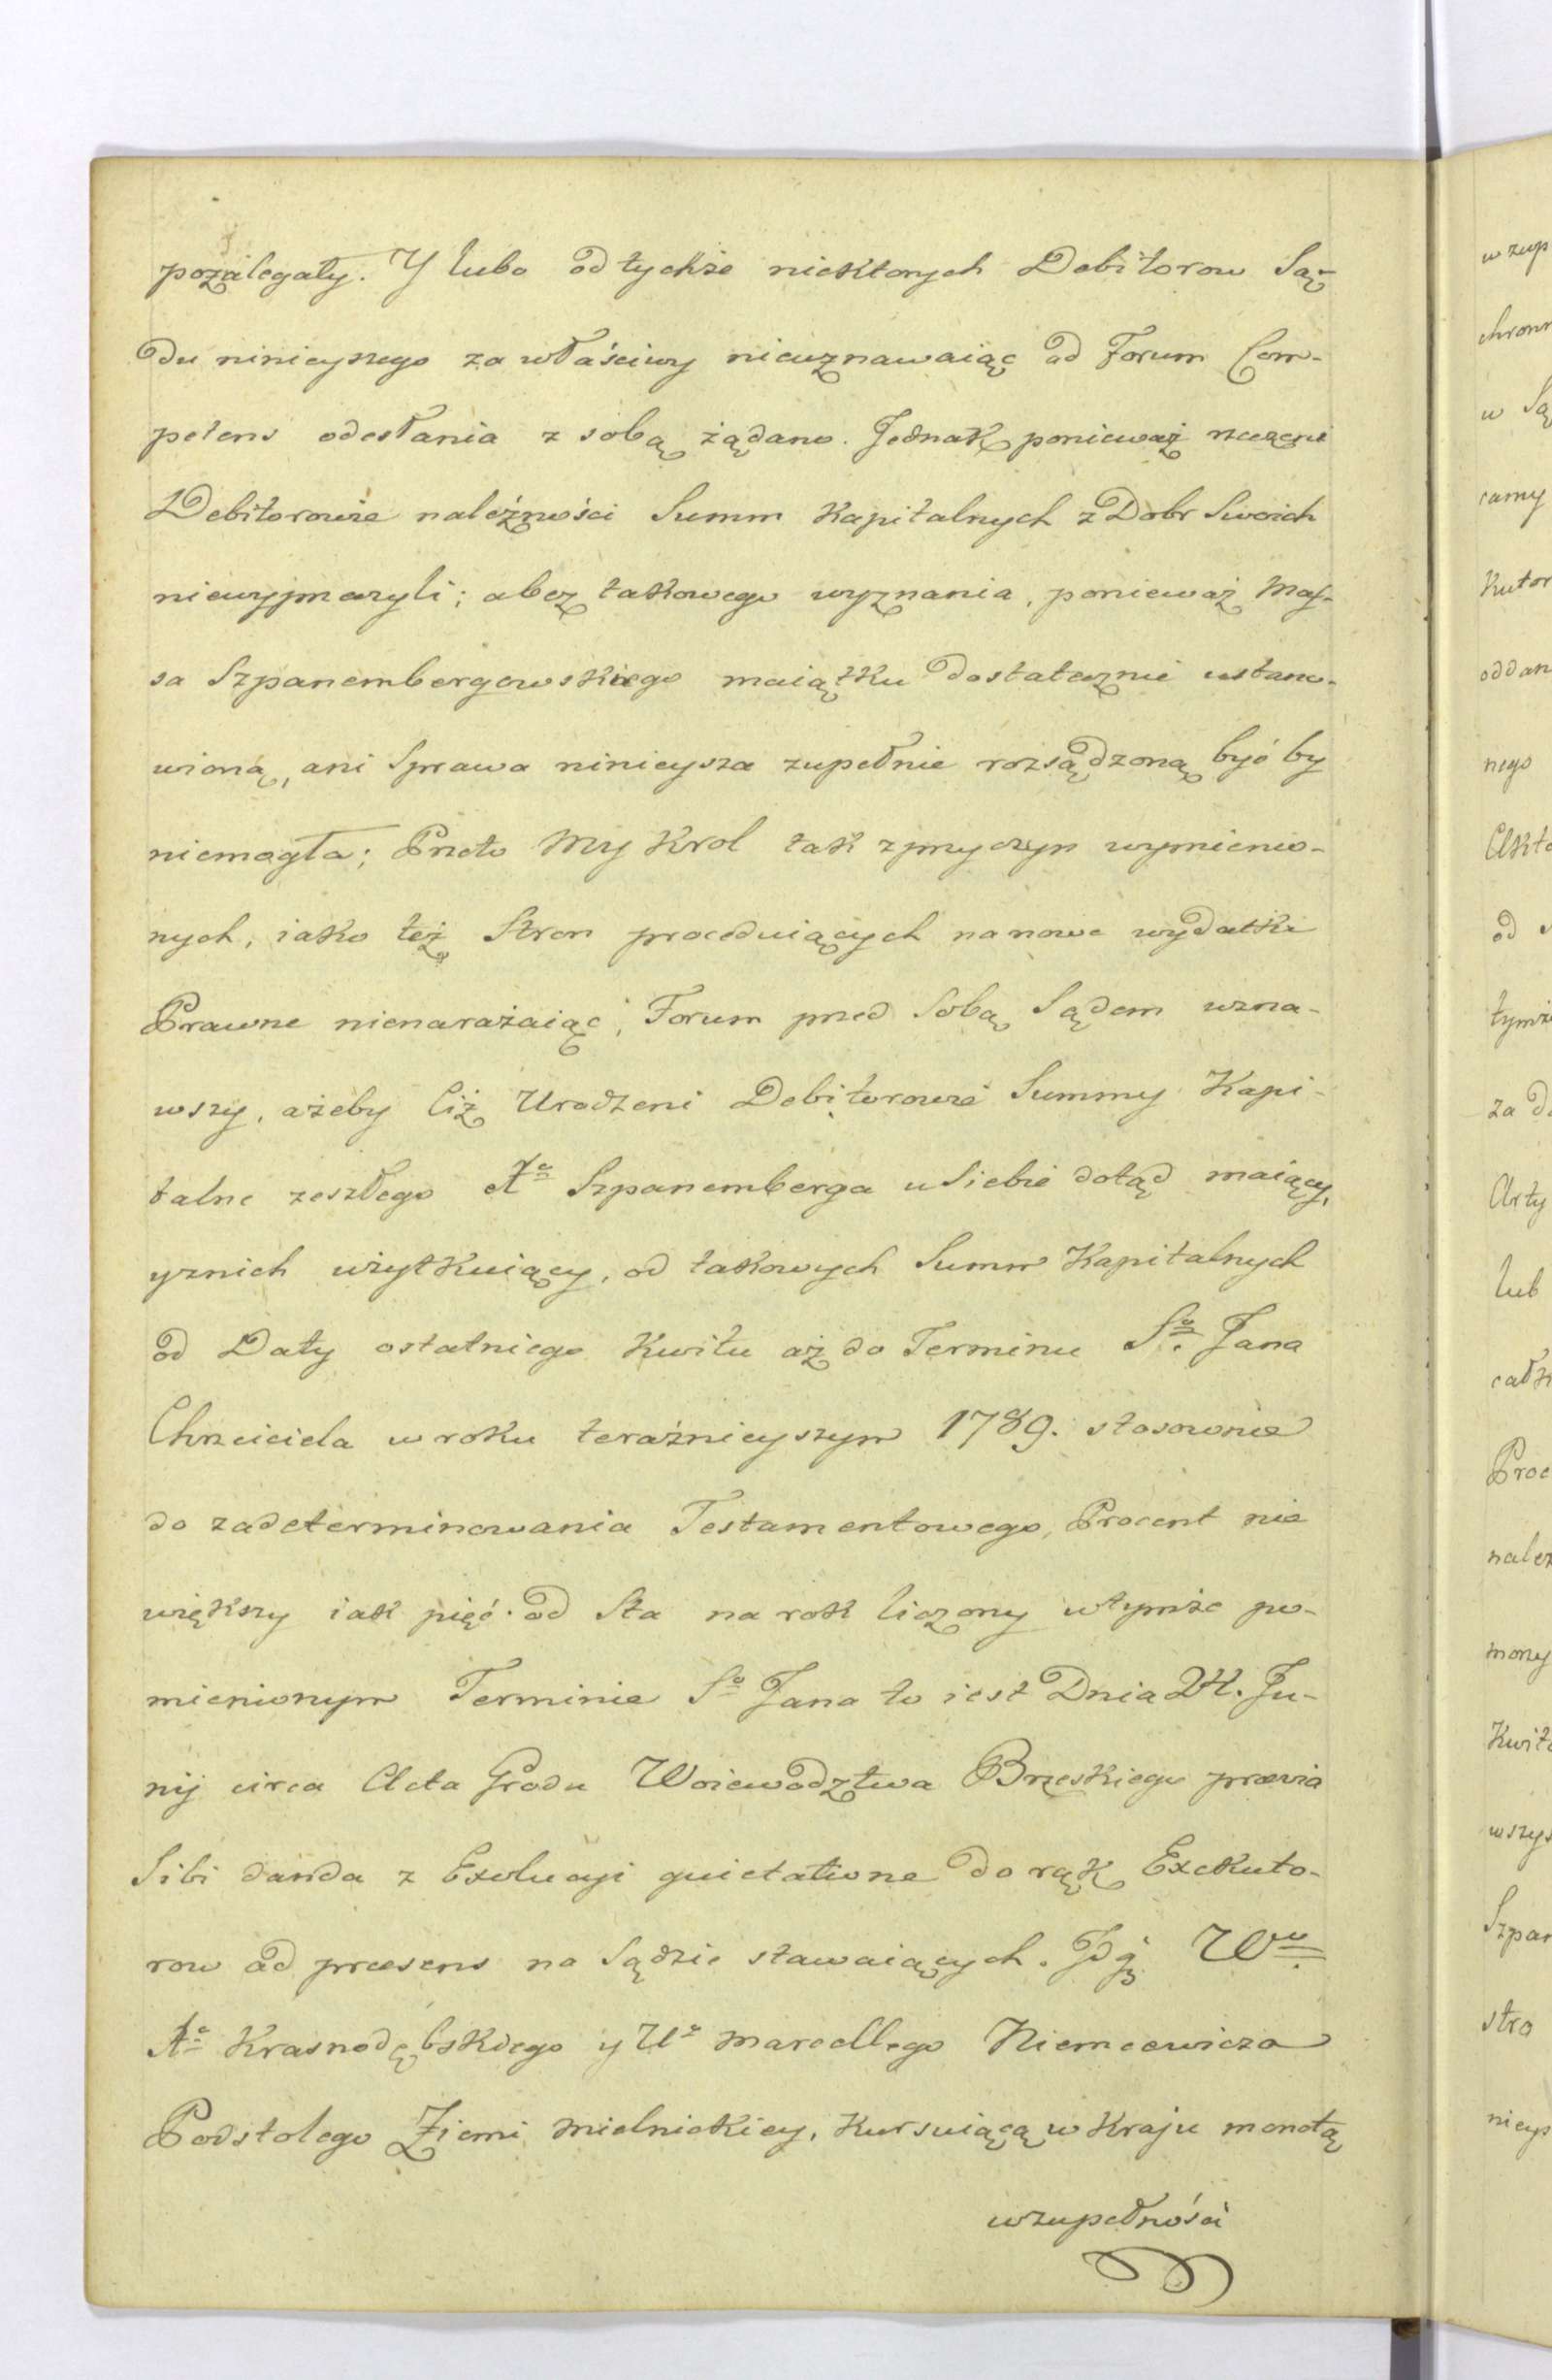 pozalegały. Y lubo od tychże niektorych Debitorow Są-
du ninieyszego za właściwy nieuznawaiąc ad Forum Com-
petens odesłania z sobą żądano. Jednak ponieważ rzeczeni
Debitorowie należźności Summ Kapitalnych z Dobr Swoich
niewyprzeczyli; a bez takowego wyznania, ponieważ Mas-
sa Szpanembergowskiego maiątku dostatecznie ustano-
wioną, ani Sprawa ninieysza zupełnie rozsądzoną być by
niemogła; Przeto My Krol tak z przyczyn wymienio-
nych, iako też Stron proceduiących na nowe wydatki
Prawne nienarażaiąc, Forum przed Sobą Sądem uzna-
wszy, ażeby Ciż Urodzeni Debitorowie Summy Kapi-
talne zeszłego Aº Szpanemberga u Siebie dotąd maiący,
y z nich użytkuiący, od takowych Summ Kapitalnych
od Daty ostatniego Kwitu aż do Terminu Sº. Jana
Chrzciciela w roku teraźnieyszym 1789. stosownie
do zadeterminowania Testamentowego, Procent nie
większy iak pięć od Sta na rok liczony w tymże po-
mienionym Terminie Sº Jana to iest Dnia 24. Ju-
nij circa Acta Grodu Woiewodztwa Brzeskiego prævia
Sibi danda z Exolucyi quietatione do rąk Exekuto-
row ad præsens na Sądzie stawaiących. Wº.
Aº Krasnodębskiego y Uº Marcellego Niemcewicza
Podstolego Ziemi Mielnickiey, kursuiącą w Kraju monetą
w zupełności
w zup
chronn
w Są
camy
Kutor
oddan
nego
Akto
od
tymże
za do
Arty
lub
Proc
należ
mony
Kwit
wszys
Szpan
stro
nieys